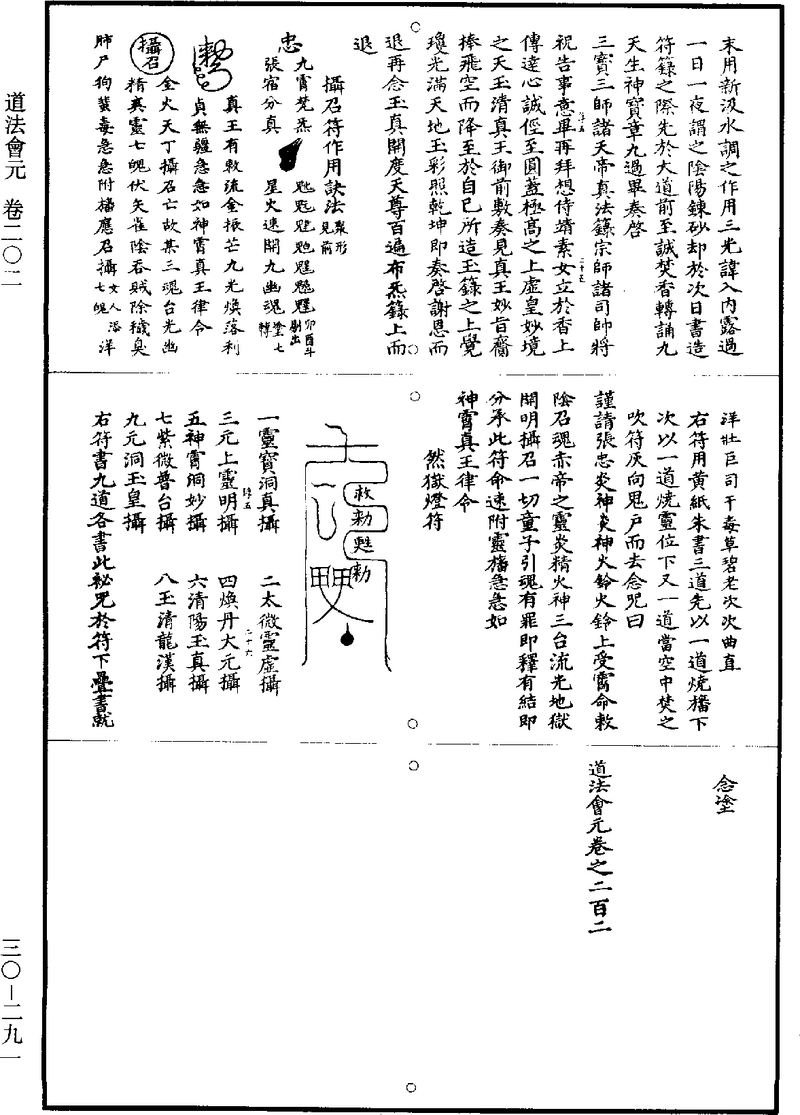 道法會元　卷二〇二
三〇－二九一
末用新汲水調之作用三光諱入內露過
一日一夜謂之陰陽鍊砂却於次日書造
符籙之際先於大道前至誠焚香轉誦九
天生神寶章九過畢奏啓
三寶三師諸天帝真法籙宗師諸司帥將
祝告事意畢再拜想侍靖素女立於香上
傳達心誠徑至圓蓋極高之上虛皇妙境
之天玉清真王御前敷奏見真王妙旨齎
捧飛空而降至於自己所造玉籙之上覺
瓊光滿天地玉彩照乾坤即奏啓謝恩而
退再念玉真開度天尊百遍布炁籙上而
退
攝召符作用訣法聚形見前
忠
九霄梵炁
張宿分真
星火速開九幽魂
真王有敕流金振芒九光煥落利
貞無疆急急如神霄真王律令
攝召
金火天丁攝召亡故某三魂台光幽
精爽靈七魄伏矢雀陰吞賊除穢臭
肺尸狗蜚毒急急附旛應召攝
洋壯巨司干毒草碧老次次曲直
右符用黃紙朱書三道先以一道燒旛下
次以一道燒靈位下又一道當空中焚之
吹符灰向鬼戶而去念咒曰
謹請張忠炎神炎神火鈴火鈴上受霄命敕
陰召魂赤帝之靈炎精火神三台流光地獄
開明攝召一切童子引魂有罪即釋有結即
分承此符命速附靈旛急急如
神霄真王律令
然獄燈符
敕勑甦勑
一靈寶洞真攝　二太微靈虛攝
三元上靈明攝　四煥丹大元攝
五神霄洞妙攝　六清陽玉真攝
七紫微普台攝　八玉清龍漢攝
九元洞玉皇攝
右符書九道各書此祕咒於符下疊書就
念塗
道法會元卷之二百二